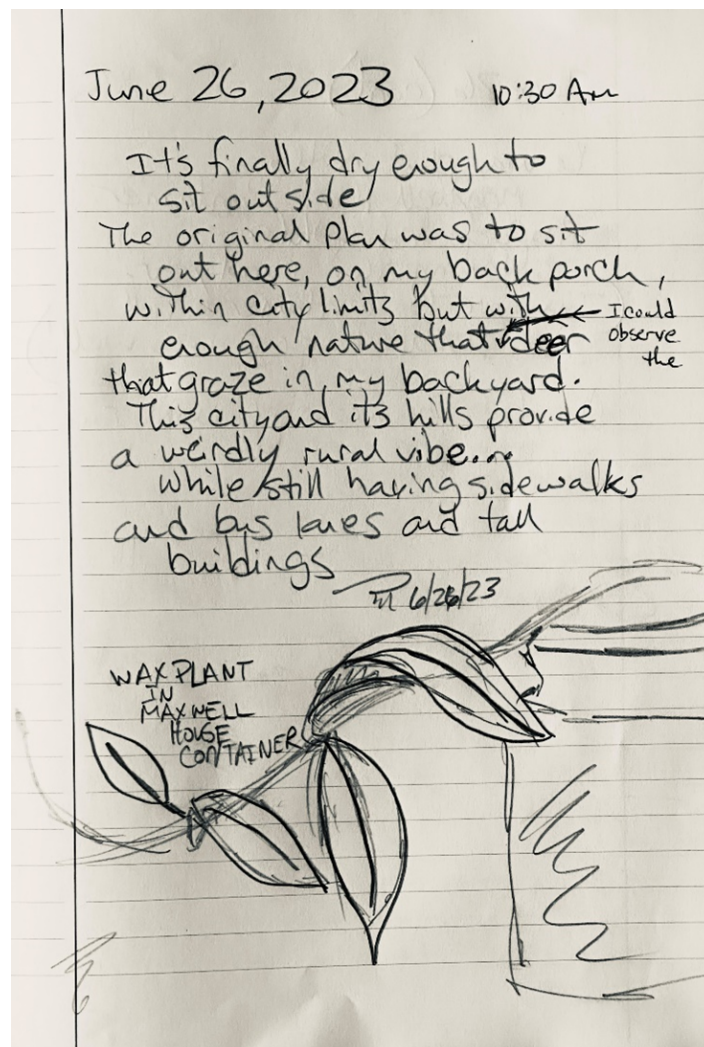 June 26, 2023 10:30 Am
It's finally dry enough to
sit outside
The original plan was to sit
out here, on my back porch,
within city limits but with
enough nature that I could observe the deer
that graze in my backyard.
This city and its hills provide
a weirdly rural vibe...
while still having sidewalks
and bus lanes and tall
buildings
6/26/23
WAX PLANT
IN
MAXWELL
HOUSE
CONTAINER